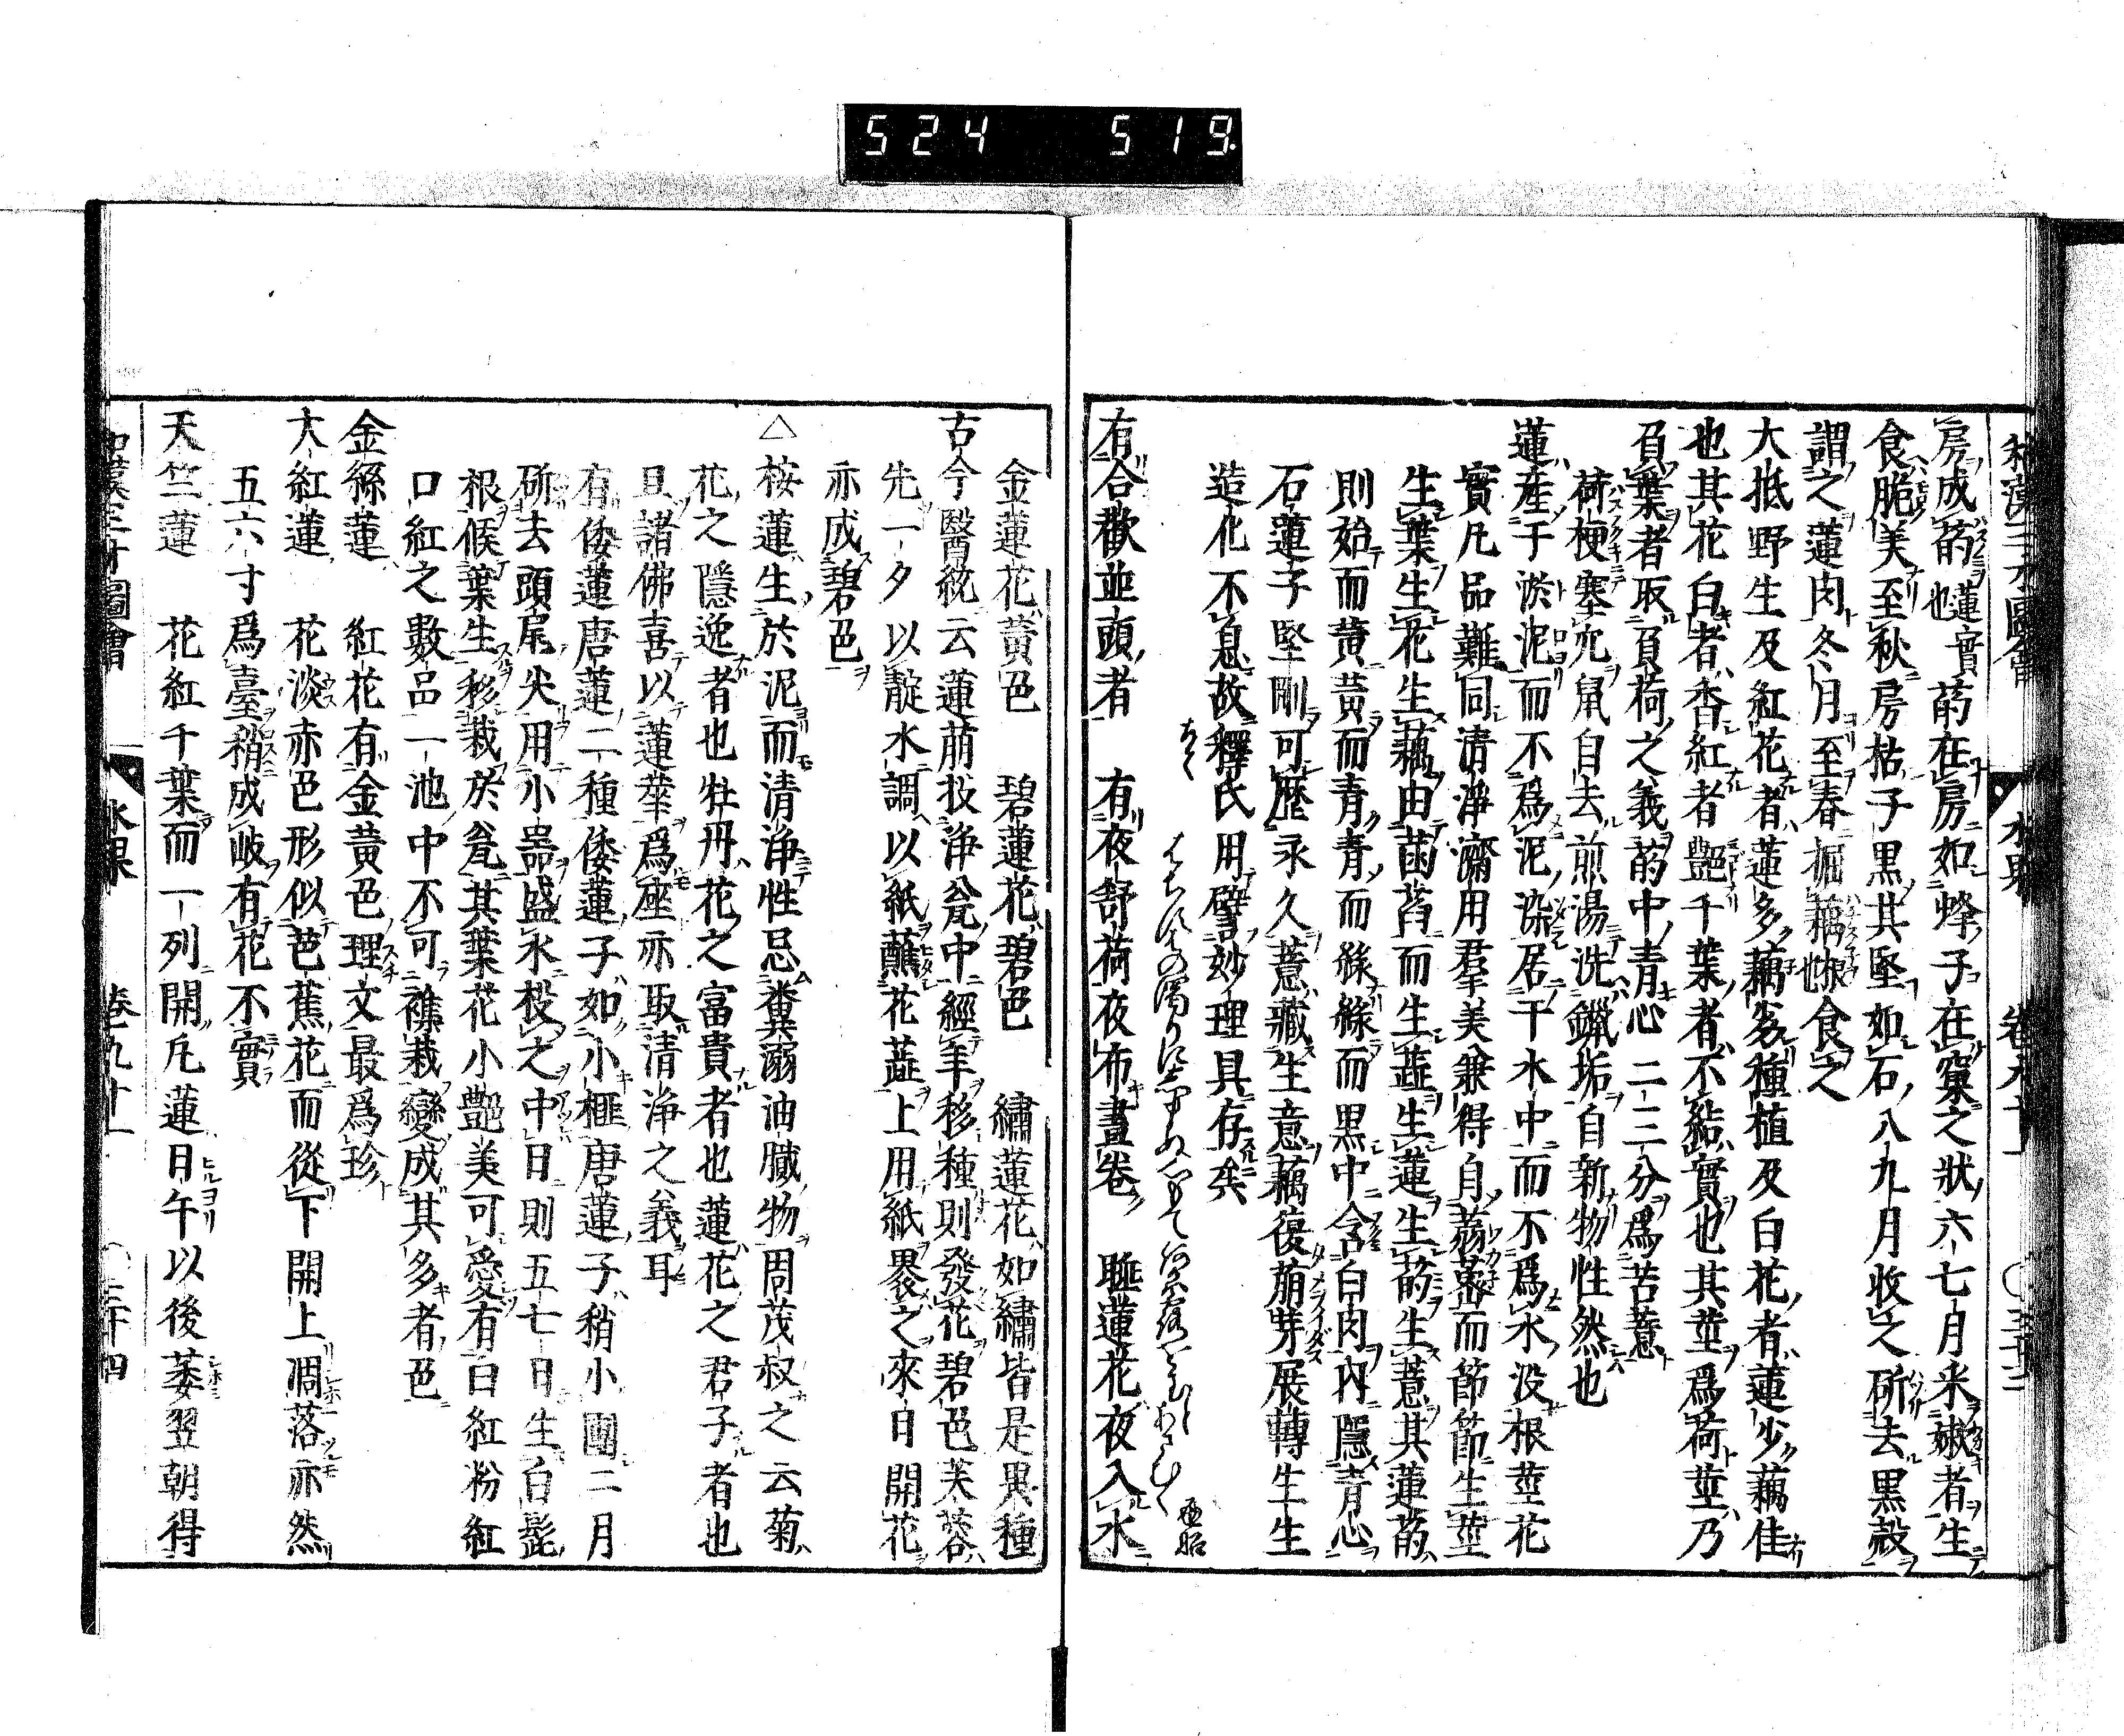 524 519.
和漢三才圖會 水果 卷九十一 ○三十三
房成菂蓮實也菂在房如蜂子在窠之狀六七月采嫩者生
食脆美至秋房枯子黑其堅如石八九月收之斫去黒殼
謂之蓮肉冬月至春掘藕根也食之
大抵野生及紅花者蓮多藕劣種植及白花者蓮少藕佳
也其花白者香紅者艷千葉者不結實也其莖爲荷莖乃
負葉者取負荷之義菂中青心二三分爲苦薏
荷梗塞穴鼠自去煎湯洗鑞垢自新物性然也
蓮産于淤泥而不爲泥染居于水中而不爲水没根莖花
實凡品難同清淨濟用羣美兼得自蒻蔤而節節生莖
生葉生花生藕由菡萏而生蕋生蓮生菂生薏其蓮菂
則始而黄黄而青青而綠綠而黒中含白肉内隱青心
石蓮子堅剛可歷永久薏藏生意藕復萠芽展轉生生
造化不息故釋氏用譬妙理具存矣
有合歡並頭者 有夜舒荷夜布晝卷 睡蓮花夜入水
金蓮花黄色 碧蓮花碧色 繡蓮花如繡皆是異種
古今醫統云蓮菂投淨瓮中經年移種則發花碧色芙蓉
先一夕以靛水調以紙蘸花蕋上用紙褁之來日開花
亦成碧色
△桉蓮生於泥而清淨性忌糞溺油膱物周茂叔之云菊
花之隱逸者也牡丹花之富貴者也蓮花之君子者也
且諸佛喜以蓮華爲座亦取清淨之義耳
有倭蓮唐蓮二種倭蓮子如小榧唐蓮子稍小團二月
斫去頭尾尖用小器盛水投之中日則五七日生白髭
根候葉生移栽於瓮其葉花小艷美可愛有白紅粉紅
口紅之數品一池中不可襍栽變成其多者色
金絲蓮 紅花有金黄色理文最爲珍
大紅蓮 花淡赤色形似芭蕉花而從下開上凋落亦然
五六寸爲臺稍成岐有花不實
天竺蓮 花紅千葉而一列開凡蓮日午以後萎翌朝得
和漢三才圖會 水果 卷九十一 ○三十四